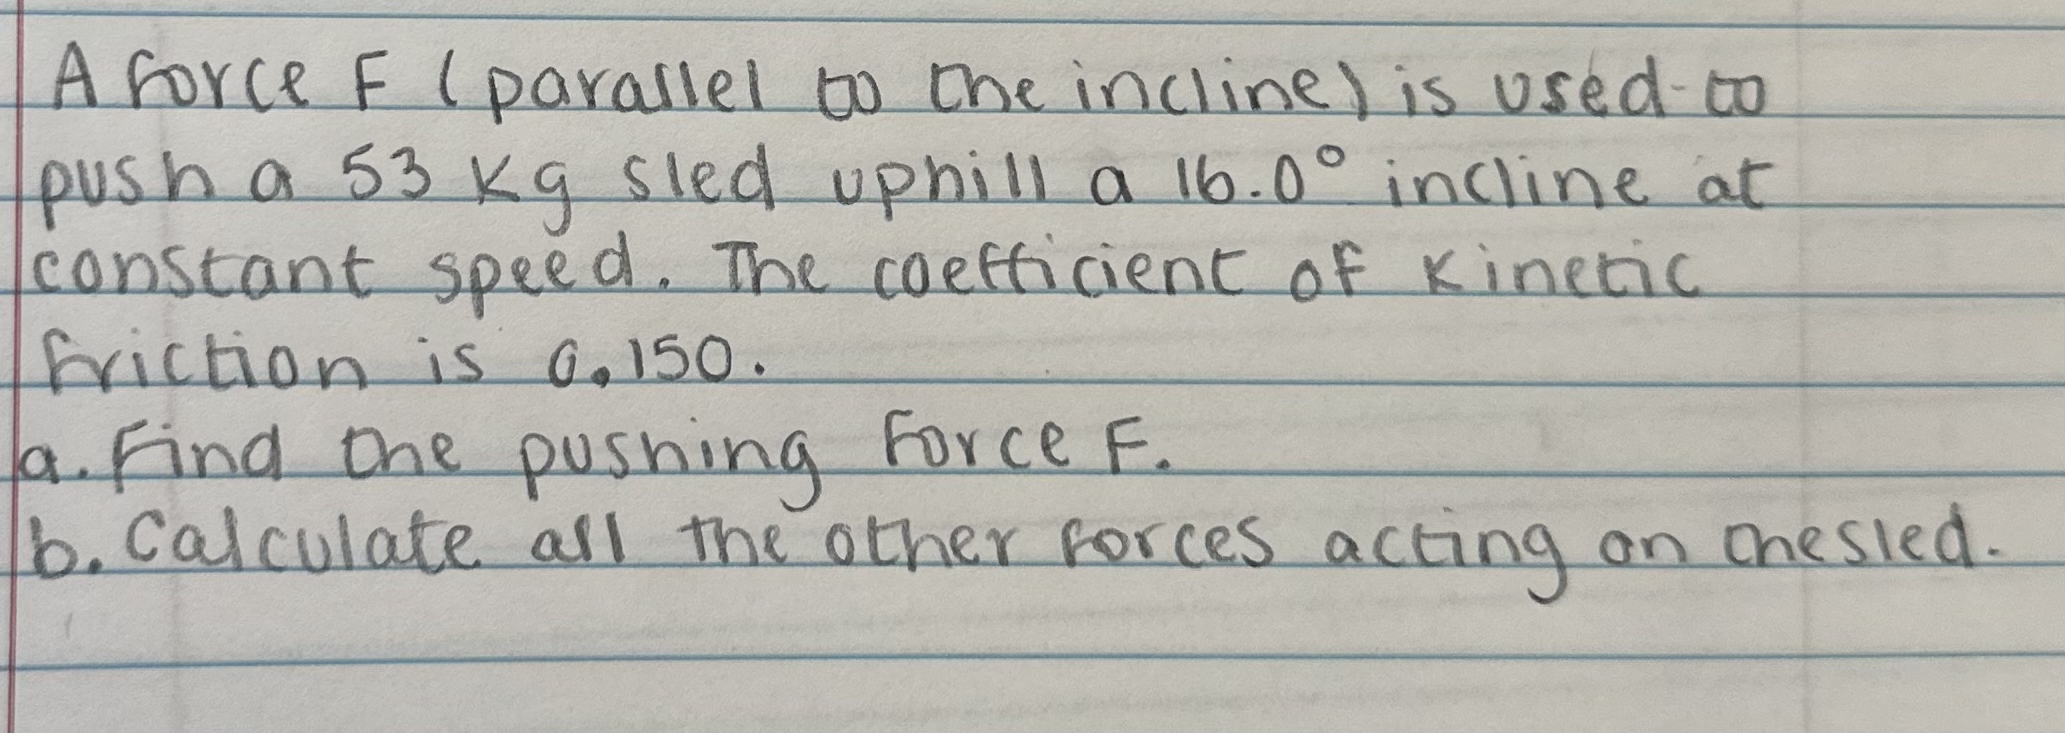 A force F (parallel to the incline) is used to
push a 53 kg sled uphill a 16.0° incline at
constant speed. The coefficient of kinetic
friction is 0.150.
a. Find the pushing force F.
b. Calculate all the other forces acting on the sled.